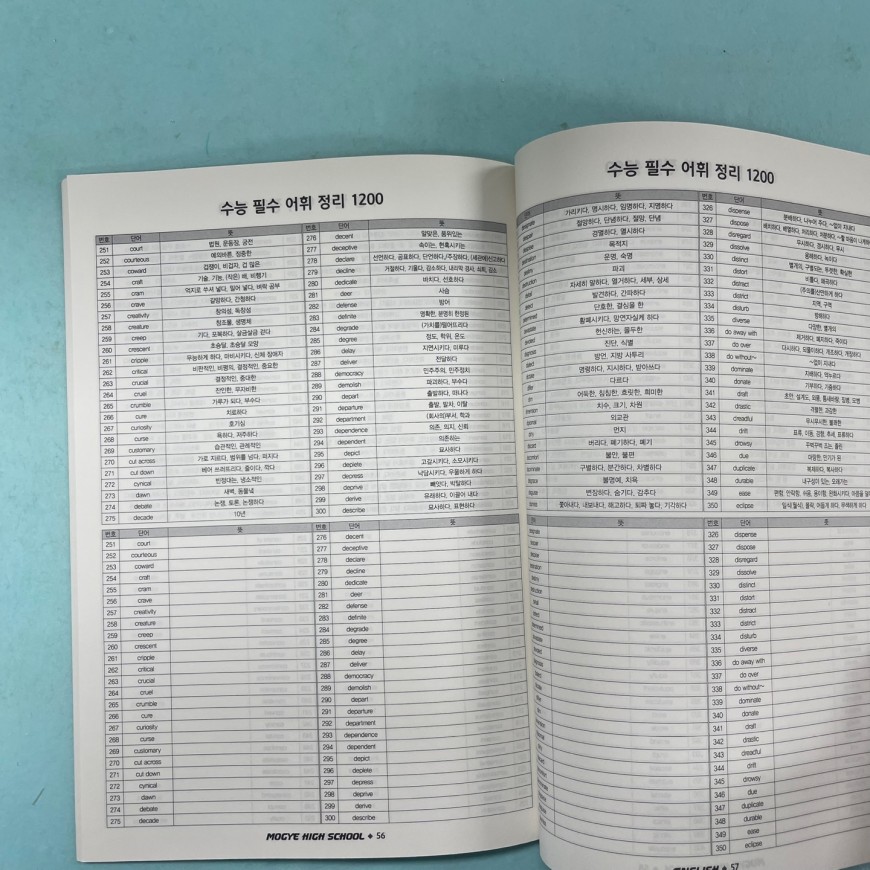 수능 필수 어휘 정리 1200
번호 단어 뜻 번호 단어 뜻
251 court 법원, 운동장, 궁전 276 decent 알맞은, 품위있는
252 courteous 예의바른, 정중한 277 deceptive 속이는, 현혹시키는
253 coward 겁쟁이, 비겁자, 겁 많은 278 declare 선언하다, 공표하다, 단언하다/주장하다, (세관에)신고하다
254 craft 기술, 기능, (작은) 배, 비행기 279 decline 거절하다, 기울다, 감소하다, 내리막 경사, 쇠퇴, 감소
255 cram 억지로 쑤셔 넣다, 밀어 넣다, 벼락 공부 280 dedicate 바치다, 헌신하다
256 crave 갈망하다, 간청하다 281 deer 사슴
257 creativity 창의성, 독창성 282 defense 방어
258 creature 창조물, 생명체 283 definite 명확한, 분명히 한정된
259 creep 기다, 포복하다, 살금살금 걷다 284 degrade (가치를)떨어뜨리다
260 crescent 초승달, 초승달 모양 285 degree 정도, 학위, 온도
261 cripple 무능하게 하다, 마비시키다, 신체 장애자 286 delay 지연시키다, 미루다
262 critical 비판적인, 비평의, 결정적인, 중요한 287 deliver 전달하다
263 crucial 결정적인, 중대한 288 democracy 민주주의, 민주정치
264 cruel 잔인한, 무자비한 289 demolish 파괴하다, 부수다
265 crumble 가루가 되다, 부수다 290 depart 출발하다, 떠나다
266 cure 치료하다 291 departure 출발, 발차, 이탈
267 curiosity 호기심 292 department (회사의)부서, 학과
268 curse 욕하다, 저주하다 293 dependence 의존, 의지, 신뢰
269 customary 습관적인, 관례적인 294 dependent 의존하는
270 cut across 가로 지르다, 범위를 넘다, 퍼지다 295 depict 묘사하다
271 cut down 베어 쓰러뜨리다, 줄이다, 깍다 296 deplete 고갈시키다, 소모시키다
272 cynical 빈정대는, 냉소적인 297 depress 낙담시키다, 우울하게 하다
273 dawn 새벽, 동틀녘 298 deprive 빼앗다, 박탈하다
274 debate 논쟁, 토론, 논쟁하다 299 derive 유래하다, 이끌어 내다
275 decade 10년 300 describe 묘사하다, 표현하다
번호 단어 뜻 번호 단어 뜻
251 court 276 decent
252 courteous 277 deceptive
253 coward 278 declare
254 craft 279 decline
255 cram 280 dedicate
256 crave 281 deer
257 creativity 282 defense
258 creature 283 definite
259 creep 284 degrade
260 crescent 285 degree
261 cripple 286 delay
262 critical 287 deliver
263 crucial 288 democracy
264 cruel 289 demolish
265 crumble 290 depart
266 cure 291 departure
267 curiosity 292 department
268 curse 293 dependence
269 customary 294 dependent
270 cut across 295 depict
271 cut down 296 deplete
272 cynical 297 depress
273 dawn 298 deprive
274 debate 299 derive
275 decade 300 describe
MOGYE HIGH SCHOOL ◆ 56
수능 필수 어휘 정리 1200
뜻 번호 단어
가리키다, 명시하다, 임명하다, 지명하다 326 dispense 분배하다, 나누어 주다, ~없이 지내다
절망하다, 단념하다, 절망, 단념 327 dispose
경멸하다, 멸시하다 328 disregard 무시하다, 경시하다, 무시
목적지 329 dissolve 용해하다, 녹이다
운명, 숙명 330 distinct 별개의, 구별되는, 뚜렷한, 확실한
파괴 331 distort 비틀다, 왜곡하다
자세히 말하다, 열거하다, 세부, 상세 332 distract (주의를)산만하게 하다
발견하다, 간파하다 333 district 지역, 구역
단호한, 결심을 한 334 disturb 방해하다
황폐시키다, 망연자실케 하다 335 diverse 다양한, 별개의
헌신하는, 몰두한 336 do away with 제거하다, 폐지하다, 죽이다
진단, 식별 337 do over 다시하다, 되풀이하다, 개조하다, 개장하다
방언, 지방 사투리 338 do without~ ~없이 지내다
명령하다, 지시하다, 받아쓰다 339 dominate 지배하다, 억누르다
다르다 340 donate 기부하다, 기증하다
어둑한, 침침한, 흐릿한, 희미한 341 draft 초안, 설계도, 외풍, 틈새바람, 밑그림, 모병
치수, 크기, 차원 342 drastic 격렬한, 과감한
외교관 343 dreadful 무시무시한, 불쾌한
먼지 344 drift 표류, 이동, 경향, 추세, 표류하다
버리다, 폐기하다, 폐기 345 drowsy 꾸벅꾸벅 조는, 졸린
불안, 불편 346 due
구별하다, 분간하다, 차별하다 347 duplicate 복제하다, 복사하다
불명예, 치욕 348 durable 내구성이 있는, 오래가는
변장하다, 숨기다, 감추다 349 ease
쫓아내다, 내보내다, 해고하다, 퇴짜 놓다, 기각하다 350 eclipse
뜻 번호 단어 뜻
326 dispense
327 dispose
328 disregard
329 dissolve
330 distinct
331 distort
332 distract
333 district
334 disturb
335 diverse
336 do away with
337 do over
338 do without~
339 dominate
340 donate
341 draft
342 drastic
343 dreadful
344 drift
345 drowsy
346 due
347 duplicate
348 durable
349 ease
350 eclipse
ENGLISH ◆ 57